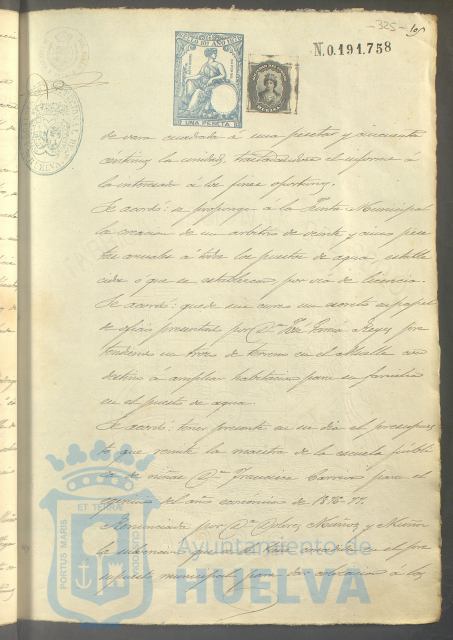 -325-
N.0.191.758
AÑO 1876
UNA PESETA
de vara cuadrada á una peseta y cincuenta
céntimos la unidad, trasladandose el informe á
la interesada á los fines oportunos.
Se acordó: se proponga á la Junta Municipal
la creacion de un arbitrio de veinte y cinco pese
tas anuales á todos los puestos de agua, estable
cidos ó que se establezcan, por via de licencia.
Se acordó: quede sin curso un escrito en papel
de oficio presentado por D. José Reyes pre
tendiendo un trozo de terreno en el Muelle con
destino á ampliar habitacion para su familia
en el puesto de agua.
Se acordó: tener presente en su dia el presupues
to que remite la maestra de la escuela públi
ca de niñas Dª Francisca para el
ejercicio del año económico de 1876-77.
Renunciada por Dª Dolores Muñoz y Muñoz
la subvencion que le está en el pre
supuesto municipal para dar educacion á las
ET TERRÆ CUSTODIA
PORTUS MARIS
Ayuntamiento de
HUELVA